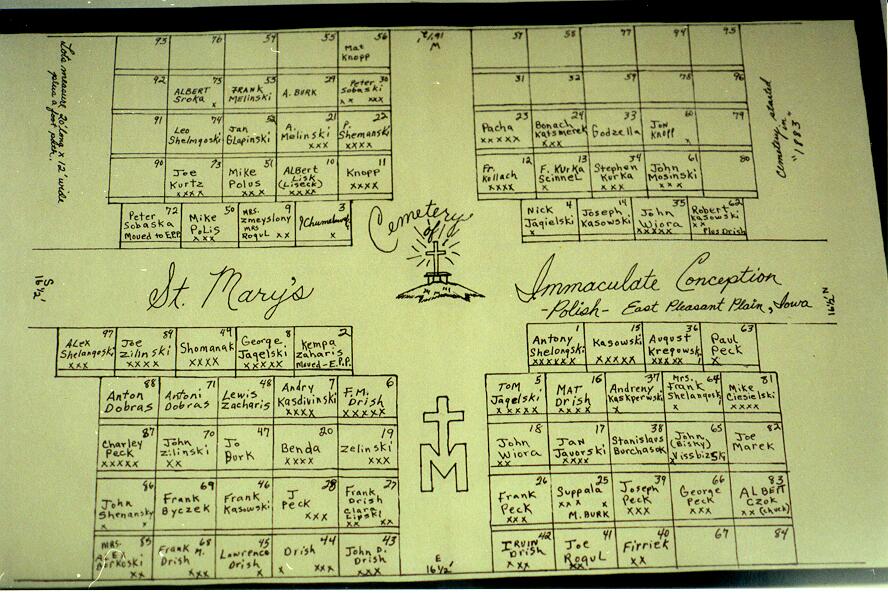 Lots measure 20' long x 12' wide
plus a foot path.
93 76 54 55 56
Mat
Knopp
92 75 53 29 30
ALBERT
Sroka
x
FRANK
Melinski
A. BURK
Peter
Sobaski
x x xxx
91 74 52 21 22
Leo
Shelmgoski
Jan
Glapinski
A.
Melinski
xxx
P.
Shemanski
x x x x
90 73 51 10 11
Joe
Kurtz
xxxx
Mike
Polus
xxx
ALbert
Lisk
(Liseck)
xxxx
Knopp
xxxx
72 50 9 3
Peter
Sobaska
Moved to E.P.P.
Mike
PoLis
xxx
MRS.
Zmeyslony
mrs.
Rogul xx
x
W
M
57 58 77 94 95
31 32 59 78 96
23 24 33 60 79
Pacha
x x x x x
Bonach
Katsmerek
xxx
Godzella
Jon
Knopp
x
12 13 34 61 80
Fr.
Kollach
x
F. Kurka
Scinnel
x
Stephen
Kurka
xx
John
Mosinski
x x x
4 14 35 62
Nick
Jagielski
x
Joseph
Kasowski
John
Wiora
xxxxx
Robert
Kasowski
xx
Plus Drish
Cemetery started
in
"1883"
Cemetery
of
St. Mary's
Immaculate Conception
-Polish- East Pleasant Plain, Iowa
S
16½'
16½' N
97 89 49 8 2
ALex
Shelangoski
xxx
Joe
Zilinski
xxxx
Shomanak
xxxx
George
Jagelski
xxxxx
Kempa
zaharis
Moved-E.P.P.
1 15 36 63
Antony
Shelongski
xxxxxx
Kasowski
xxxxx
August
Krepowski
xxxx
Paul
Peck
x
88 71 48 7 6
Anton
Dobras
Antoni
Dobras
Lewis
Zacharis
Andry
Kasdivinski
xxxx
F.M.
Drish
xxxxx
5 16 37 64 81
TOM
Jagelski
x x x x x
MAT
Drish
x x x x
Andreny
Kaskperwski
x
Mrs.
Frank
Shelangoski
x
Mike
Ciesielski
xxxx
87 70 47 20 19
Charley
Peck
xxxxx
John
Zilinski
xx
Jo
Burk
Benda
xxxx
Zelinski
x x
18 17 38 65 82
John
Wiora
xx
Jan
Javorski
xxxx
Stanislaus
Burchasok
John
(Bisky)
Vissbizski
Joe
Marek
86 69 46 28 27
John
Shenansky
x x
Frank
Byczek
Frank
Kasowski
J
Peck
xxx
Frank
Drish
Clara
Lipski
xx xx
26 25 39 66 83
Frank
Peck
xxx
Suppala
xx x x
M.BURK
Joseph
Peck
xxx
George
Peck
x x
ALBERT
Czok
xx (chuck)
85 68 45 44 43
MRS.
ALEX
xx
Frank M.
Drish
xxx
Lawrence
Drish
x
Drish
x xxx
John D.
Drish
xxxx
E
16½'
42 41 40 67 84
IRVIN
Drish
x x
Joe
Rogul
xx
Firriek
xx